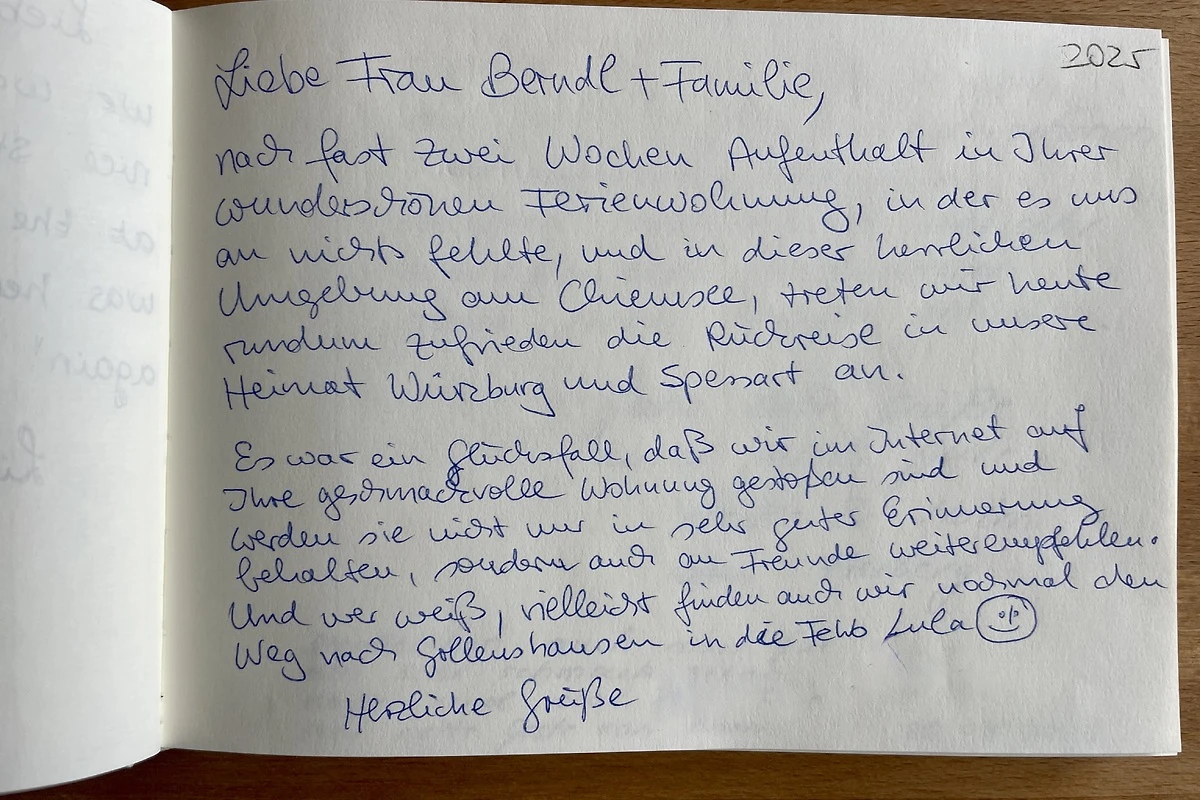 2025
Liebe Frau Berndl + Familie,
nach fast zwei Wochen Aufenthalt in Ihrer
wunderschönen Ferienwohnung, in der es uns
an nichts fehlte, und in dieser herrlichen
Umgebung am Chiemsee, treten wir heute
rundum zufrieden die Rückreise in unsere
Heimat Würzburg und Spessart an.
Es war ein Glücksfall, daß wir im Internet auf
Ihre geschmackvolle Wohnung gestoßen sind und
werden sie nicht nur in sehr guter Erinnerung
behalten, sondern auch an Freunde weiterempfehlen.
Und wer weiß, vielleicht finden auch wir nochmal den
Weg nach Gollenshausen in die FeWo Lula
Herzliche Grüße